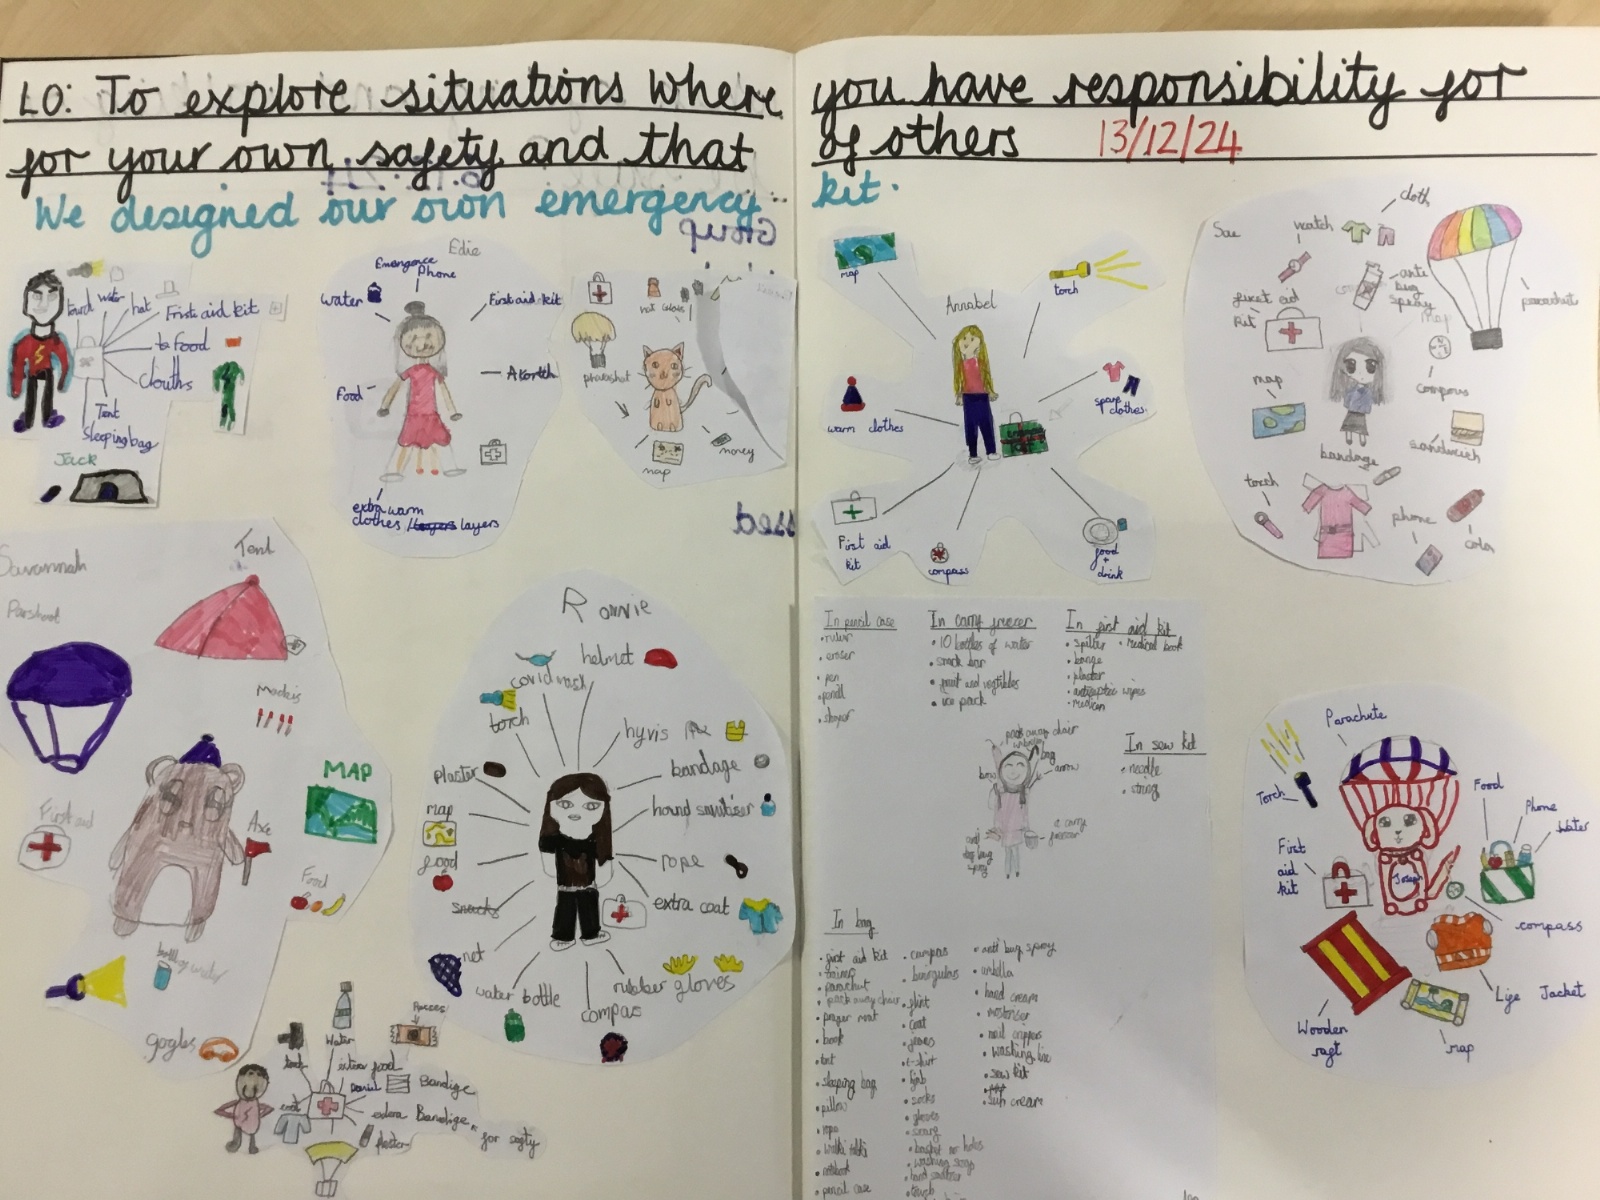 LO: To explore situations where you have responsibility for
for your own safety and that of others 13/12/24
We designed our own emergency kit.
torch
water
hat
First aid kit
Food
Clouths
Tent
Sleeping bag
Jack
Edie
Emergence
Phone
water
First aid kit
A torch
Food
extra warm
clothes / layers layers
map
money
Annabel
map
torch
warm clothes
spare
clothes
First aid
kit
compass
food
+
drink
Sae
watch
cloth
ante
bug
spray
parachut
first aid
kit
map
map
compous
sandwich
bandage
torch
phone
cola
Savannah
Tent
Parshoot
MAP
First aid
Axe
Food
gogles
Ronnie
covid mask
helmet
torch
hyvis
plaster
bandage
map
hand sanitiser
food
rope
snacks
extra coat
net
water bottle
compas
rubber gloves
Water
extra food
Bandige
coat
extra Bandige
for safty
plaster
In pencil case
• ruler
• eraser
• pen
• pencil
In carry freezer
• 10 bottles of water
• snack bar
• fruit and vegtibles
• ice pack
In first aid kit
• medical book
• plaster
• antiseptic wipes
In sew kit
• needle
• string
pack away chair
umbrella
bag
bow
arrow
a carry
freezer
anti
bug
spray
In bag
• first aid kit
• parachut
• pack away chair
• prayer mat
• book
• tent
• sleeping bag
• pillow
• rope
• notebook
• pencil case
• compas
• flint
• coat
• t-shirt
• socks
• gloves
• washing soap
• anti bug spray
• hand cream
• washing line
• sew kit
• sun cream
Parachute
Torch
Food
Phone
Water
First
aid
kit
Joseph
compass
Life Jacket
Wooden
raft
map